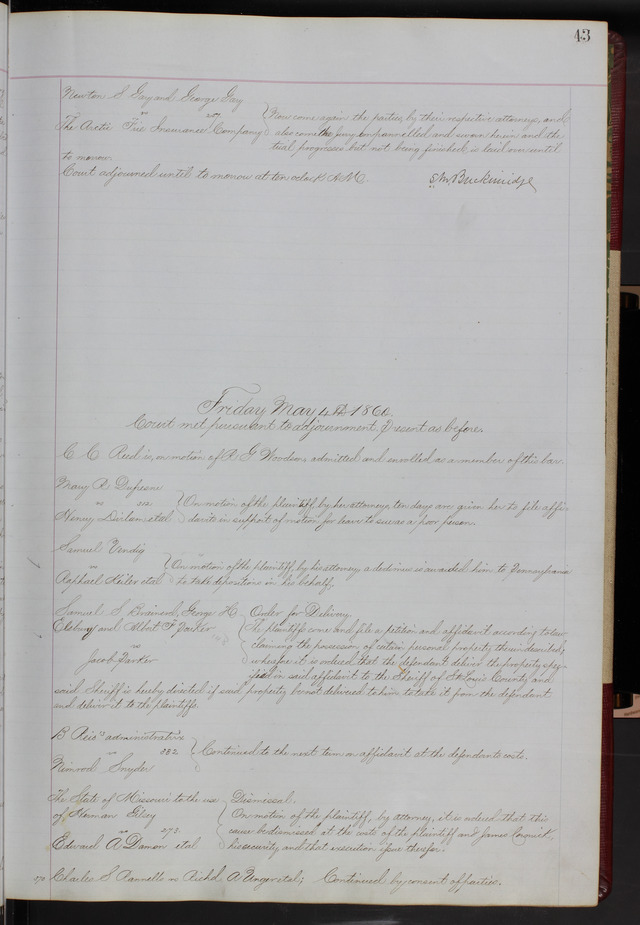 43
Newton S Gay and George Gay
vs 257
The Arctic Fire Insurance Company
Now come again the parties by their respective attorneys, and
also comes the jury empannelled and sworn herein and the
trial progresses but not being finished, is laid over until
to morrow.
Court adjourned until to morrow at ten oclock A.M.
S. M. Breckinridge
Friday May 4th 1866.
Court met pursuant to adjournment, Present as before.
C C Reed is, on motion of R G Woodson admitted and enrolled as a member of this bar.
Mary R Dufresne
vs 312
Henry etal
On motion of the plaintiff, by her attorney, ten days are given her to file affi-
davits in support of motion for leave to sue as a poor person.
Samuel Vendig
vs
Raphael Keiler etal
On motion of the plaintiff, by his attorney, a dedimus is awarded him to Pennsylvania
to take depositions in his behalf.
Samuel S Brainerd, George H
and Albert F Parker
vs
Jacob Parker
Order for Delivery
The plaintiffs come and file a petition and affidavit according to law
claiming the possession of certain personal property therein described;
wherefore it is ordered that the defendant deliver the property spe-
cified in said affidavit to the Sheriff of St Louis County and
said Sheriff is hereby directed if said property be not delivered to him to take it from the defendant
and deliver it to the plaintiffs.
B administratrix
vs 332
Nimrod Snyder
Continued to the next term on affidavit at the defendants costs.
The State of Missouri to the use
of Herman
vs 273
Edward A Damon etal
Dismissal.
On motion of the plaintiff, by attorney, it is ordered that this
cause be dismissed at the costs of the plaintiff and James
his security, and that execution issue therefor.
272 Charles S Rannells vs Richd A Unger etal; Continued by consent of parties.